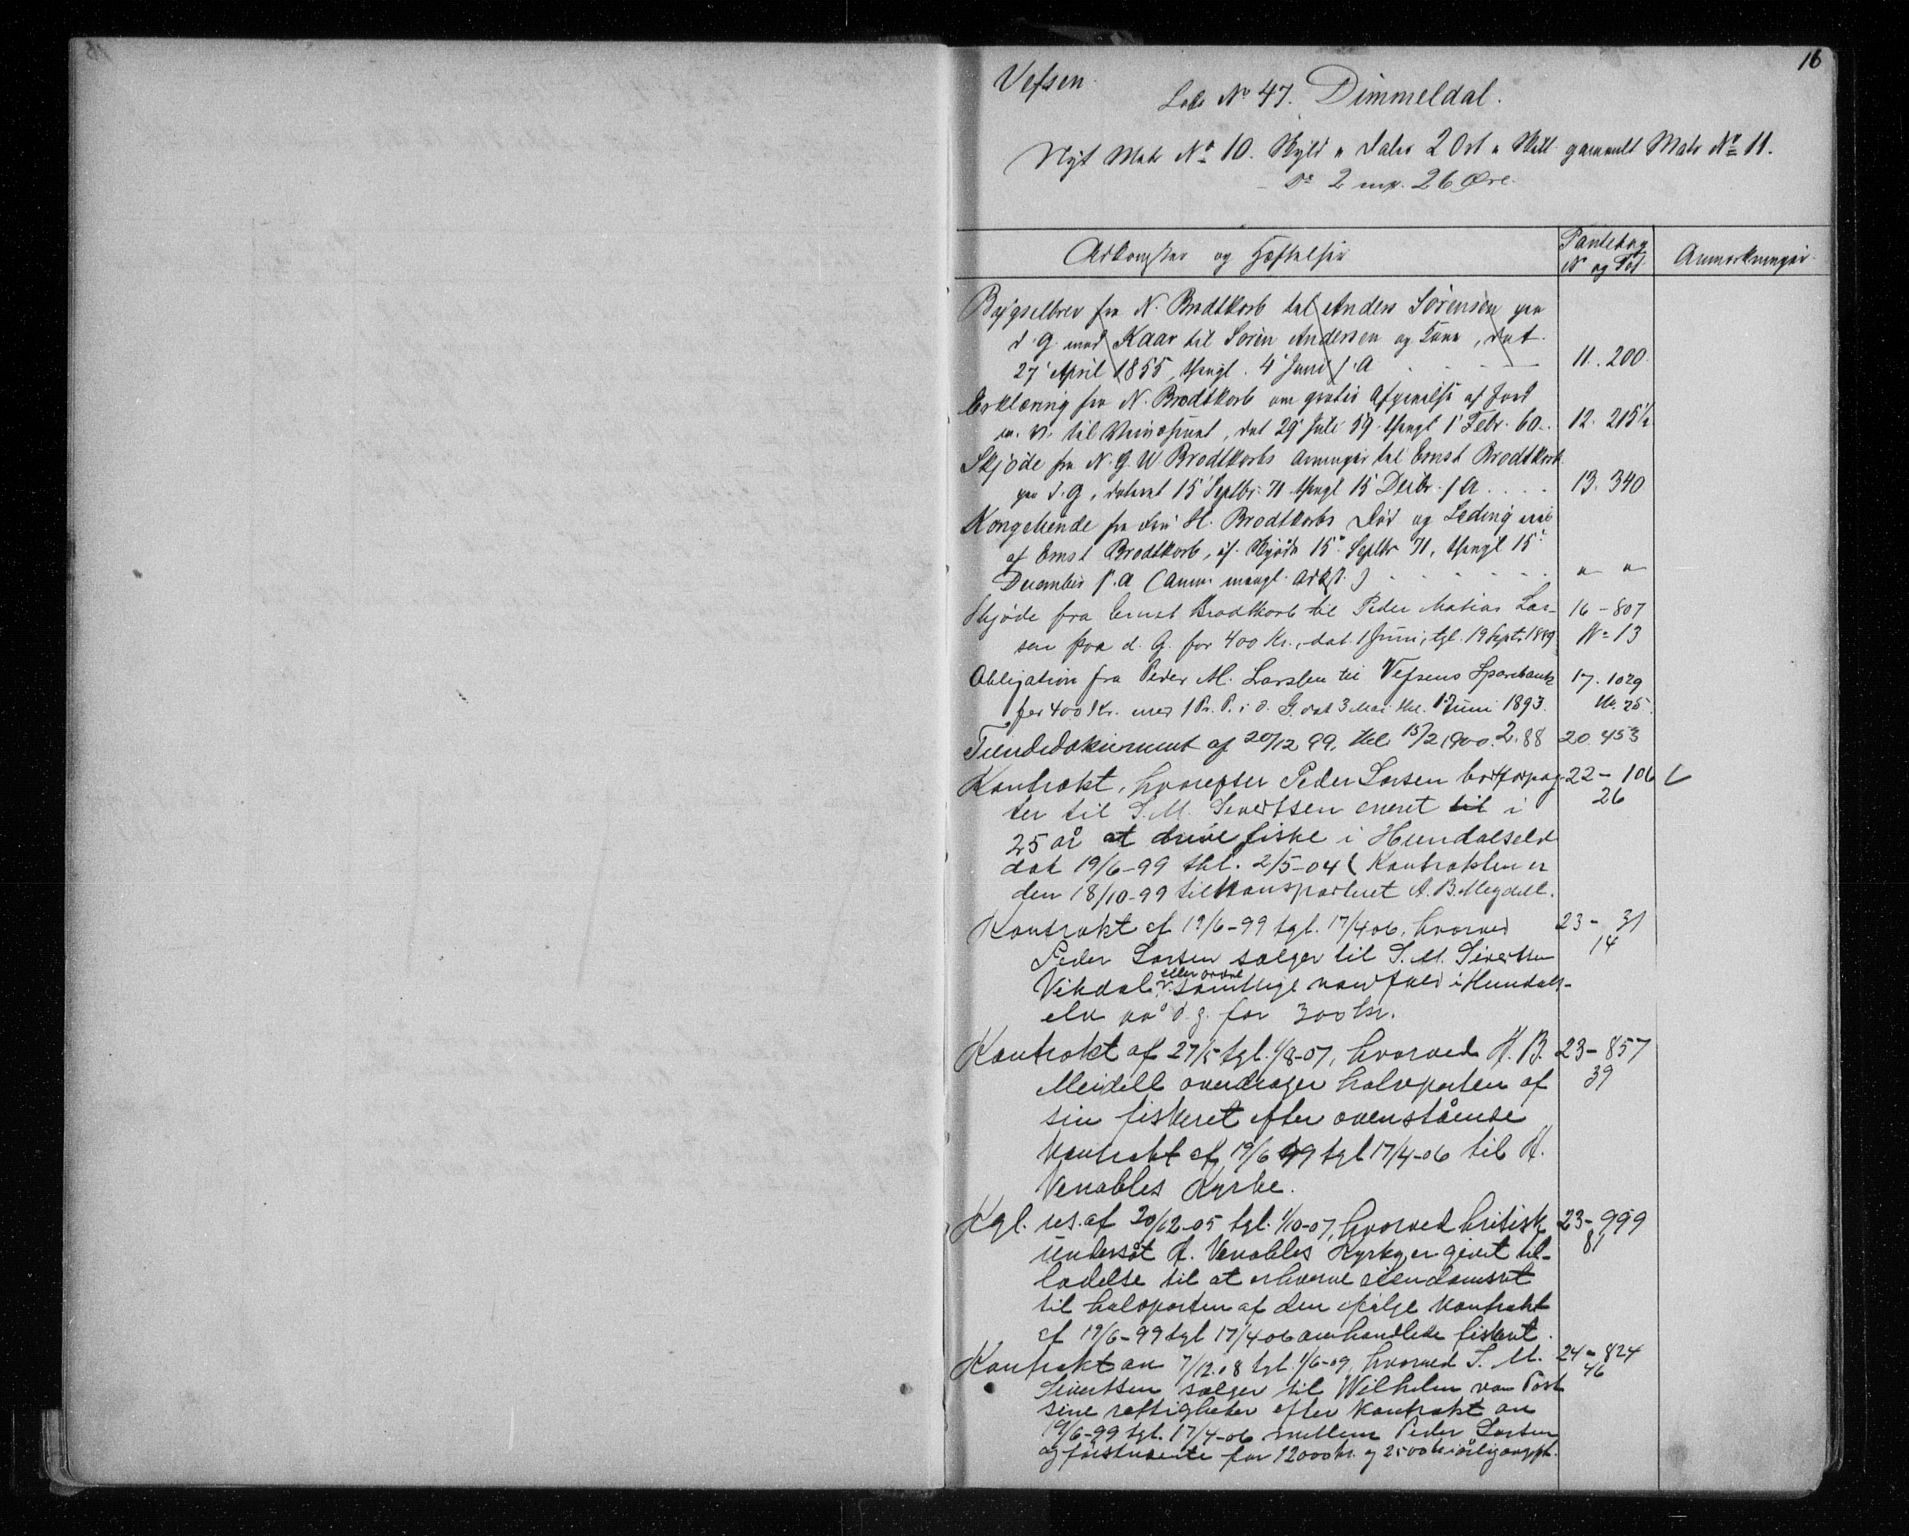 16
Vefsen.
Løbe No 47. Dimmeldal.
Nyt Matr No 10. Skyld " Daler 2 Ort " Skill. gammelt Matr No 11.
Do 2 mrk. 26 Øre.
Adkomster og Hæftelser
Pantebog
No og Fol.
Anmærkninger.
Bygselbrev fra N. Brodtkorb til Anders Sørensen paa
d. G. med Kaar til Søren Andersen og Kone, dat.
27 April 1855, thingl. 4 Juni s. A. 11. 200.
Erklæring fra N. Brodtkorb om gratis Afgivelse af Jord
m. v. til Veivæsenet, dat 29 Juli 59 thingl 1 Febr. 60. 12. 215 1/2
Skjøde fra N. G. W Brodtkorbs Arvinger til Ernst Brodtkorb
paa d. G., dateret 15 Septbr. 71 thingl 15 Decbr. s A. 13. 340
Kongetiende fra H. Brodtkorbs Død og
af Ernst Brodtkorb, if. Skjøde 15 Septbr 71, thingl 15
December s. A (Anm. mangl. Adkst.) " "
Skjøde fra Ernst Brodtkorb til Peder Matias Lar- 16 - 807
sen paa d. G. for 400 Kr., dat. 1 Juni, tgl. 19 Sept. 1889 No 13
Obligation fra Peder M. Larsen til Vefsens Sparebank 17. 1029
for 400 Kr. med 1 Pr. P. i d. G. dat 3 Mai thl. 1 Juni 1893. No. 25.
Tiendedokument af 20/12 99, thl 15/2 1900. 2.88 20. 453
Kontrakt, hvorefter Peder Larsen bortforpag- 22 - 106
ter til S. M. Sivertsen eneret til i 26
25 år at drive fiske i Hundalselv
dat 19/6-99 thl. 2/5-04 (Kontrakten er
den 18/10-99 tiltransporteret A. B. Meydell.
Kontrakt af 19/6-99 tgl. 17/4 06, hvorved 23 - 31
Peder Larsen sælger til S. M. Sivertsen 14
eller ordre
Vikdal samtlige vandfald i Hundals-
elv på d. g. for 300 kr.
Kontrakt af 27/5 tgl. 1/8-07, hvorved H. B. 23 - 857
Meidell overdrager halvparten af 39
sin fiskeret efter ovenstående
kontrakt af 19/6 99 tgl 17/4-06 til H.
Venables Kyrke.
Kgl. res. af 20/12-05 tgl. 1/10-07, hvorved britisk 23 - 999
undersåt H. Venables Kyrke er givet til- 81
ladelse til at erhverve eiendomsret
til halvparten af den ifølge kontrakt
af 19/6-99 tgl 17/4 06 omhandlede fiskeret.
Kontrakt av 7/12.08 tgl. 1/6-09, hvorved S. M. 24 - 824
Sivertsen sælger til Wilhelm von Post 46
sine rettigheter efter kontrakt av
19/6-99 tgl. 17/4-06 mellem Peder Larsen
og førstnevnte for 12000 kr. og 2500 kr i årlig avgift.